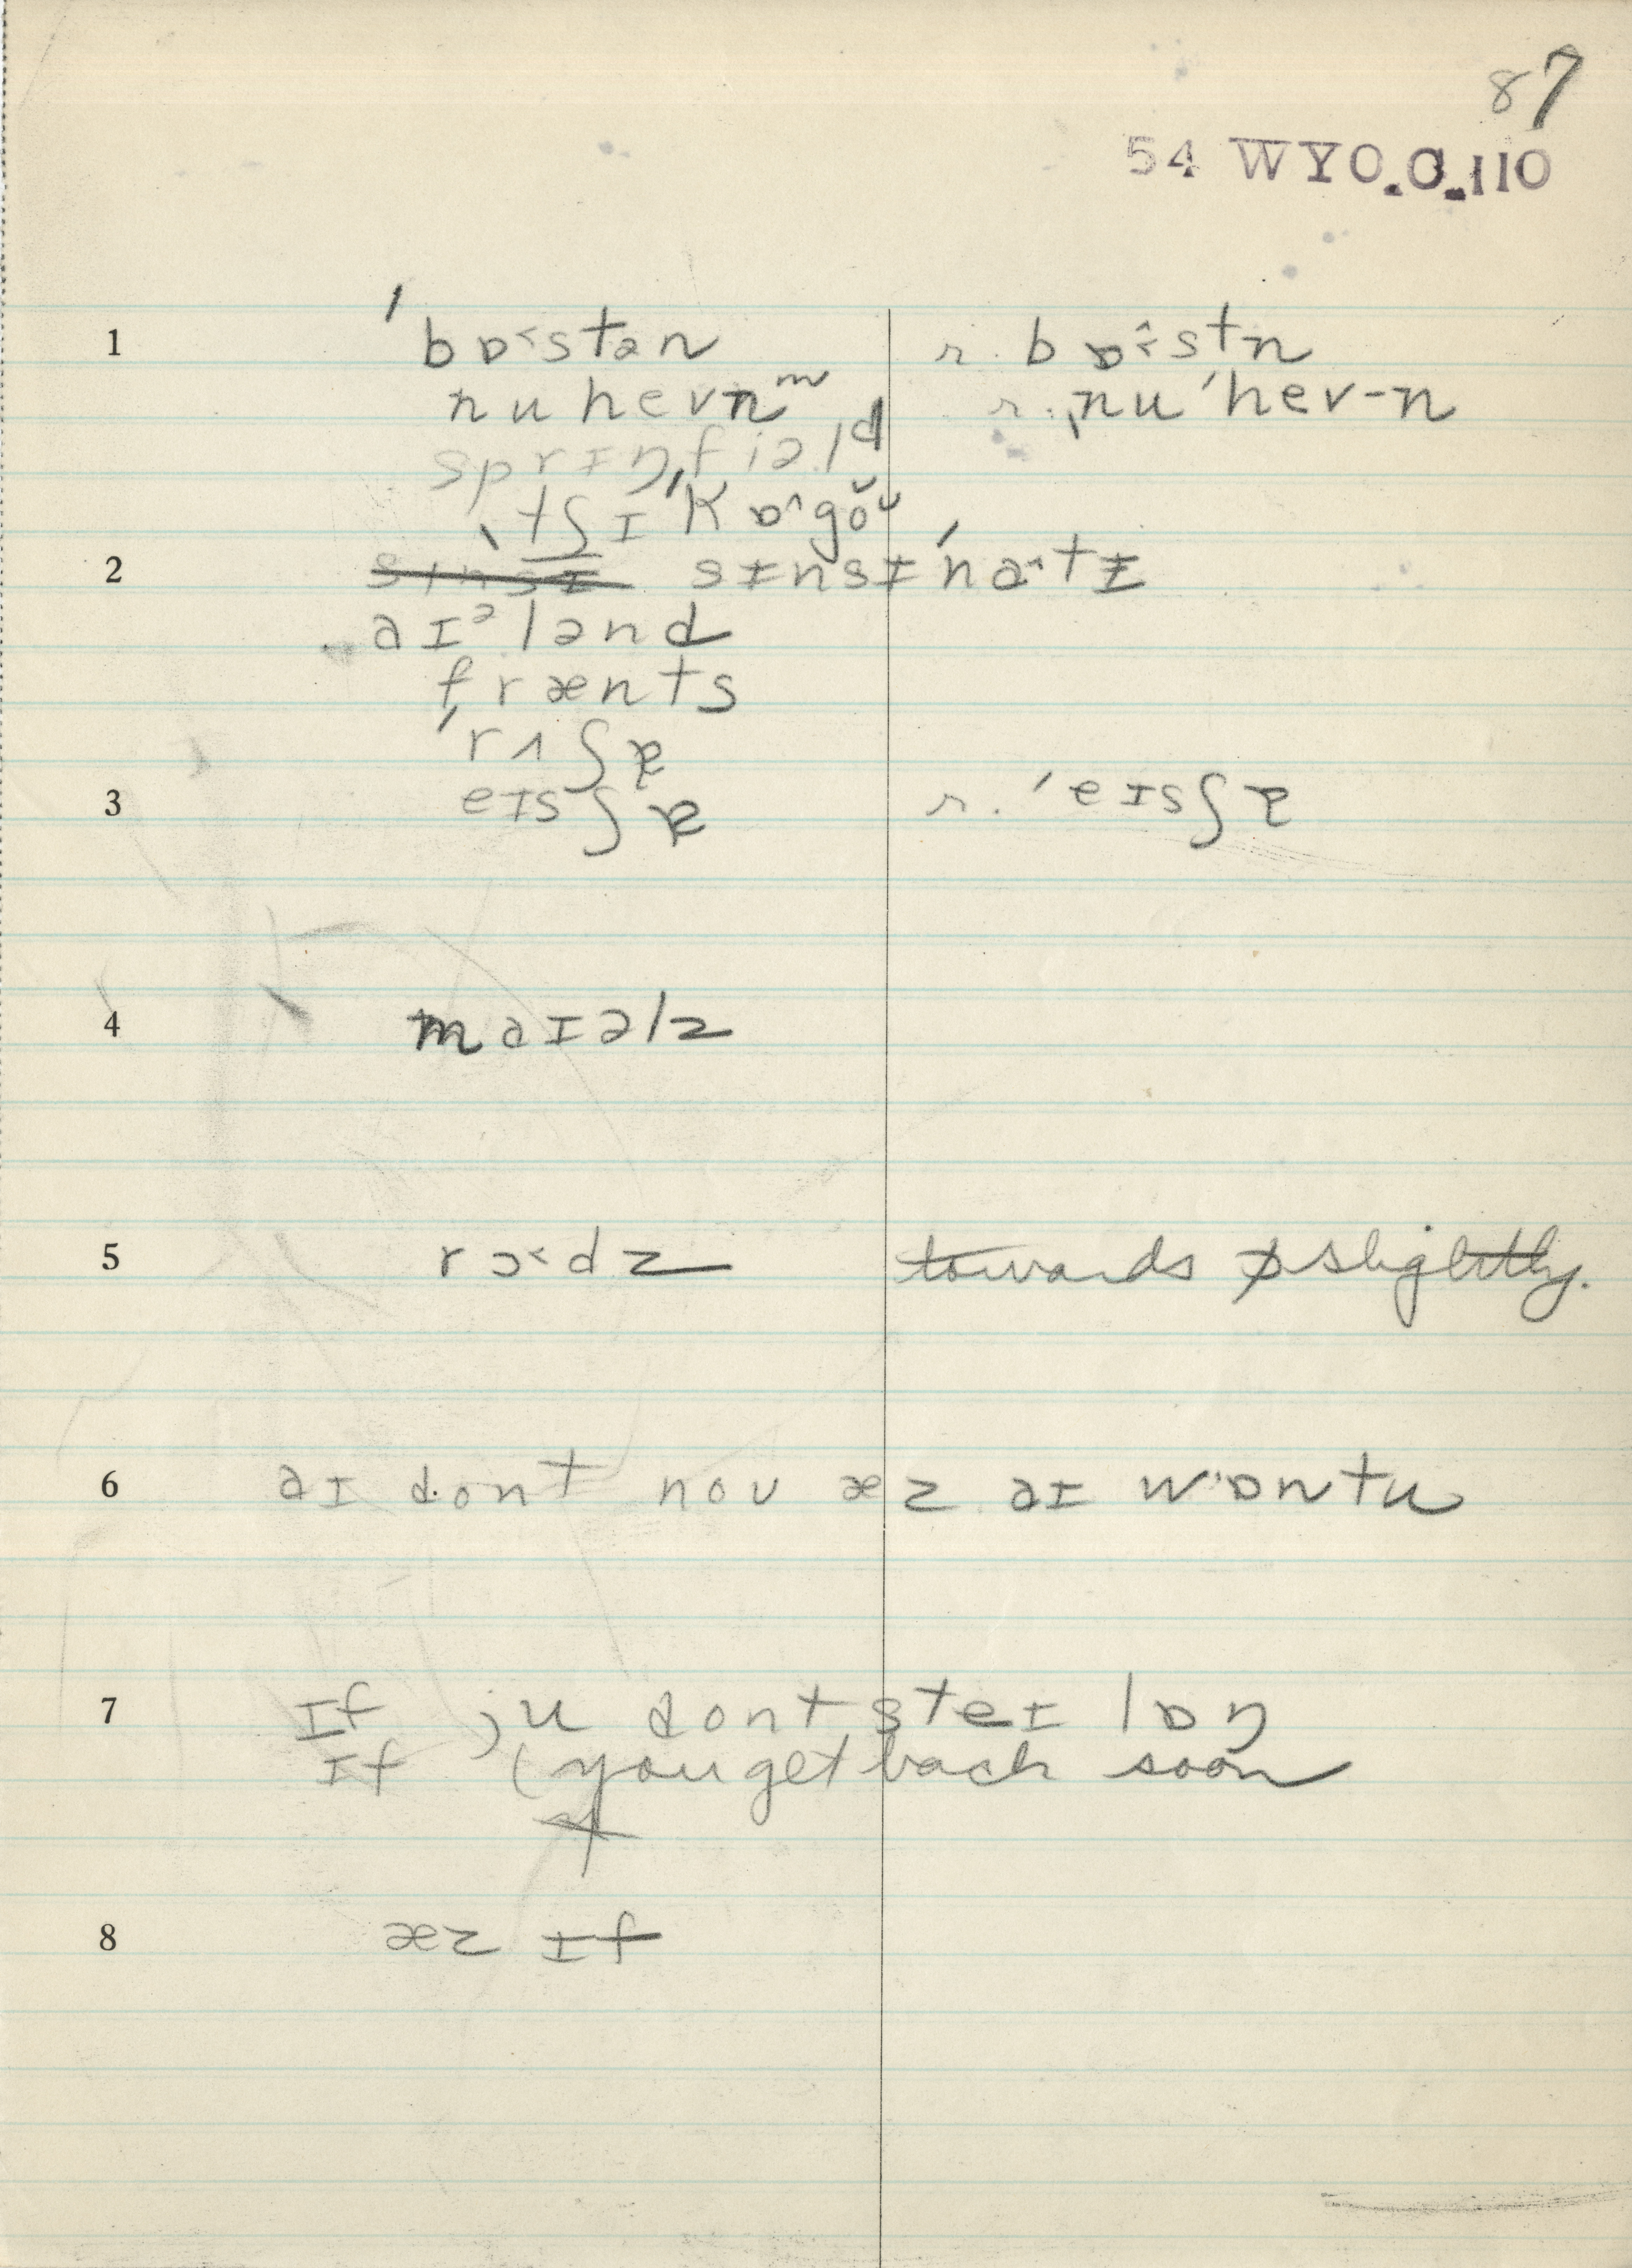 87
54 WYO.O.110
1 ˈbɒ˂stən r. bɒ˂̂stn
nuhevn ᵐ r. ˌnuˈhev-n
sprɪŋˌfiəld
ˌtʃɪˈkɒ˄gŏŭ
2 ~~sɪnsɪ~~ sɪnsɪˈna˔tɪ
aɪᵊlənd
frænts
ˈrʌʃɚ
3 eɪsʃɚ r. ˈeɪsʃɚ
4 maɪəlz
5 rɔ˂dz ~~towards ɒ slightly.~~
6 aɪ dont noʊ æz aɪ wɒntu
7 ɪf ju dont steɪ lɒŋ
ɪf (you get back soon
8 æz ɪf